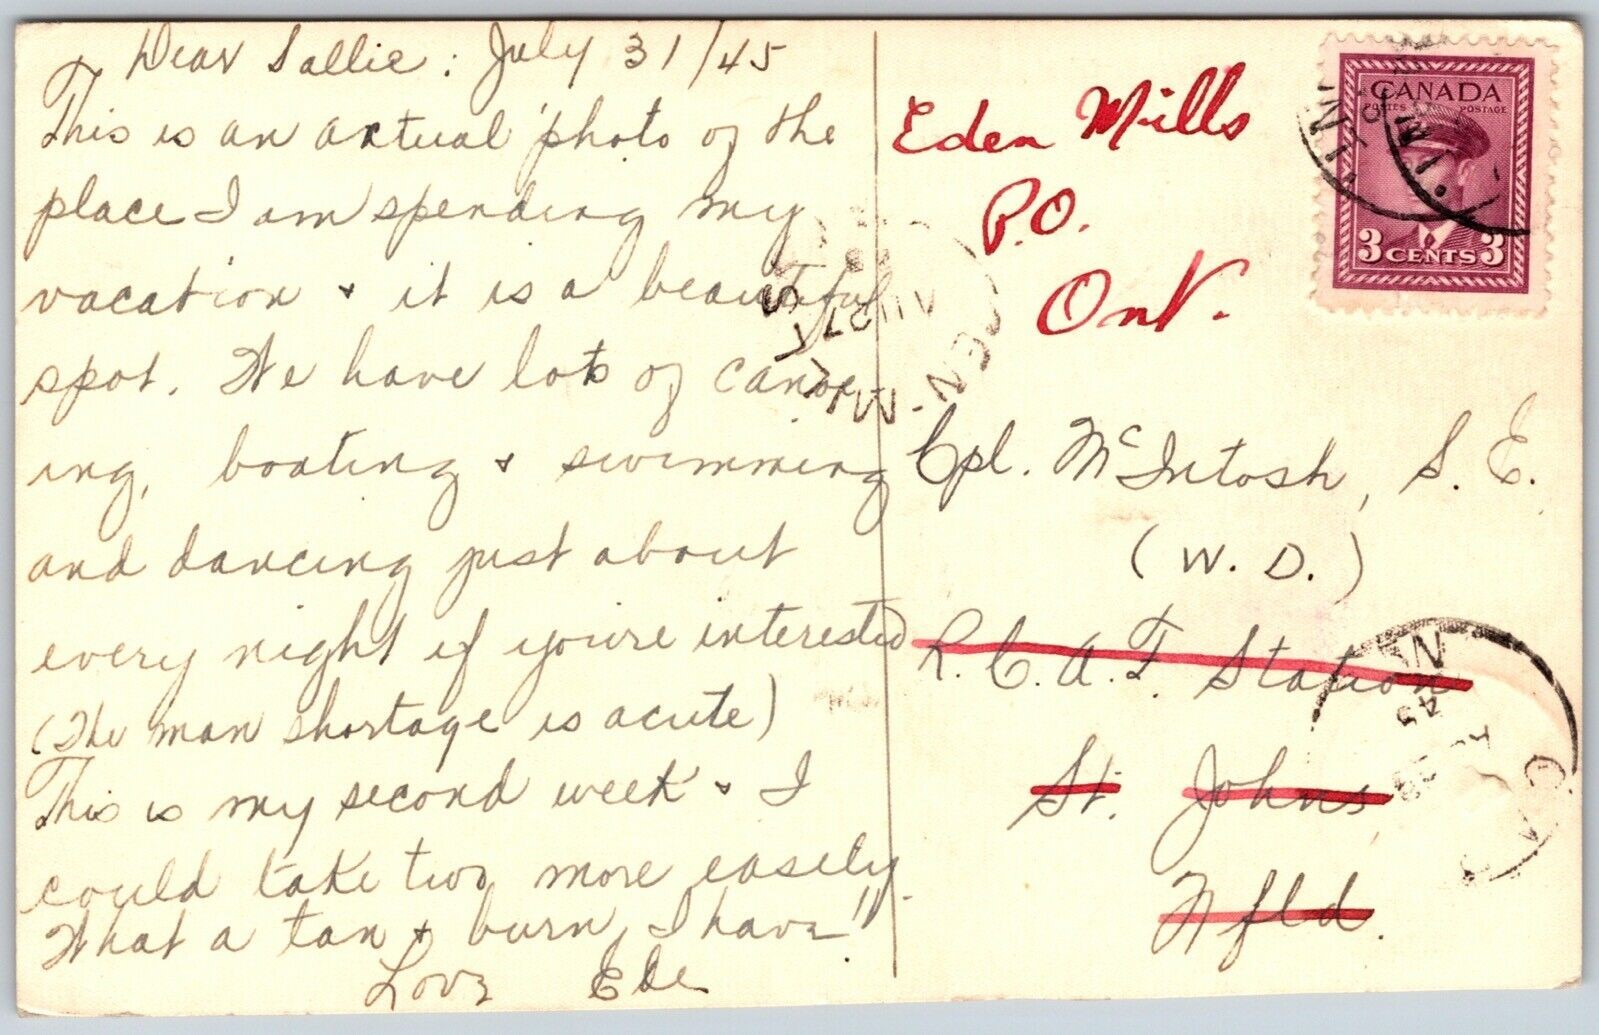 Dear Sallie: July 31/45
This is an actual photo of the
place I am spending my
vacation & it is a beautiful
spot. We have lots of canoe-
ing, boating & swimming
and dancing just about
every night if you're interested
(The man shortage is acute)
This is my second week & I
could take two more easely.
What a tan & burn, I have!!
Love
Eden Mills
P.O.
Ont.
CANADA
POSTES POSTAGE
3 CENTS 3
Cpl. McIntosh, S. E.
(W. D.)
R. C. A. F. Station
St. Johns
Nfld.
EN MIL
AU 27
45